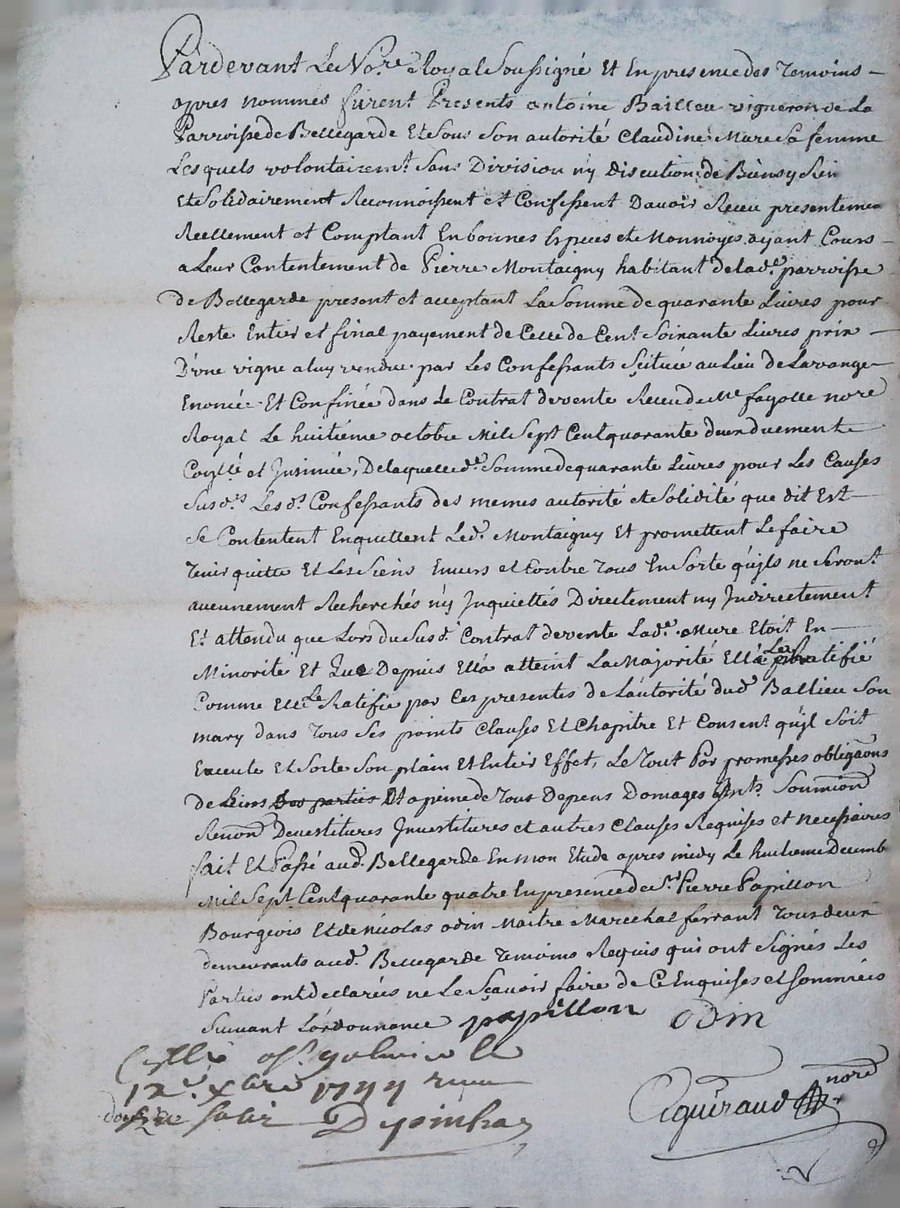 Pardevant Le No.re Royal Soussigné Et En presence des Temoins
apres nommés furent Presents antoine Baillieu vigneron de La
Parroisse de Bellegarde Et Sous Son autorité Claudine Mure Sa femme
Lesquels volontairem.t Sans Division n'y Discution de Biens
Et Solidairement Reconnoissent et Confessent Davoir Receu presenteme
Reellement et Comptant En bonnes Especes et Monnoyes ayant Cours
a Leur Contentement de Pierre Montaigny habitant de lad.e parroisse
de Bellegarde present et acceptant La Somme de quarante Livres pour
Reste Entier et final payement de Celle de Cent Soixante Livres prix
D'vne vigne a luy vendue par Les Confessants Scituée au Lieu de Lavange
Enoncée Et Confinée dans Le Contrat de vente Receu de M.e fayolle no.re
Royal Le huitième octobre Mil Sept Cent quarante deux duement
Coñllé et Jnsinué, De laquelle d.e Somme de quarante Livres pour Les Causes
Susd.s Les d.s Confessants des memes autorité et Solidité que dit Est
Se Contentent Enquittent Led.t Montaigny Et promettent Le faire
Tenir quitte Et Les Siens Envers et Contre Tous En Sorte qu'jls ne Seront
aucunnement Recherchés n'y Jnquiettés Directement n'y Jndirectement
Et attendu que Lors du Susd.t Contrat de vente Lad.e Mure Etoit En
Minorité Et Que Depuis Ella atteint La Majorité Ella Les Ratifié
Comme Elle Le Ratifie par Ces presentes de Lautorité dud.t Ballieu Son
mary dans Tous Ses points Clauses Et Chapitre Et Consent qu'jl Soit
Execute Et Sorte Son plain Et Entier Effet, Le Tout Par promesses obligaõns
De Biens Des parties Et a peine de Tous Depens Domages Soumiõns
Renonõns Devestitures Jnvestitures et autres Clauses Requises et necessaires
fait Et Passé aud.t Bellegarde En mon Etude apres midy Le huitieme Decemb
Mil Sept Cent quarante quatre En presence de S.r Pierre Papillon
Bourgeois Et de Nicolas odin Maitre Marechal ferrant Tous deux
demeurants aud.t Bellegarde Temoins Requis qui ont Signés Les
Parties ont declarées ne Le Sçavoir faire de C Enquises et Sommées
Suivant L'ordonnance papillon odin
Coñllé
12.e Xbre 1744 receu
douze Sols
Aguéraud no.re